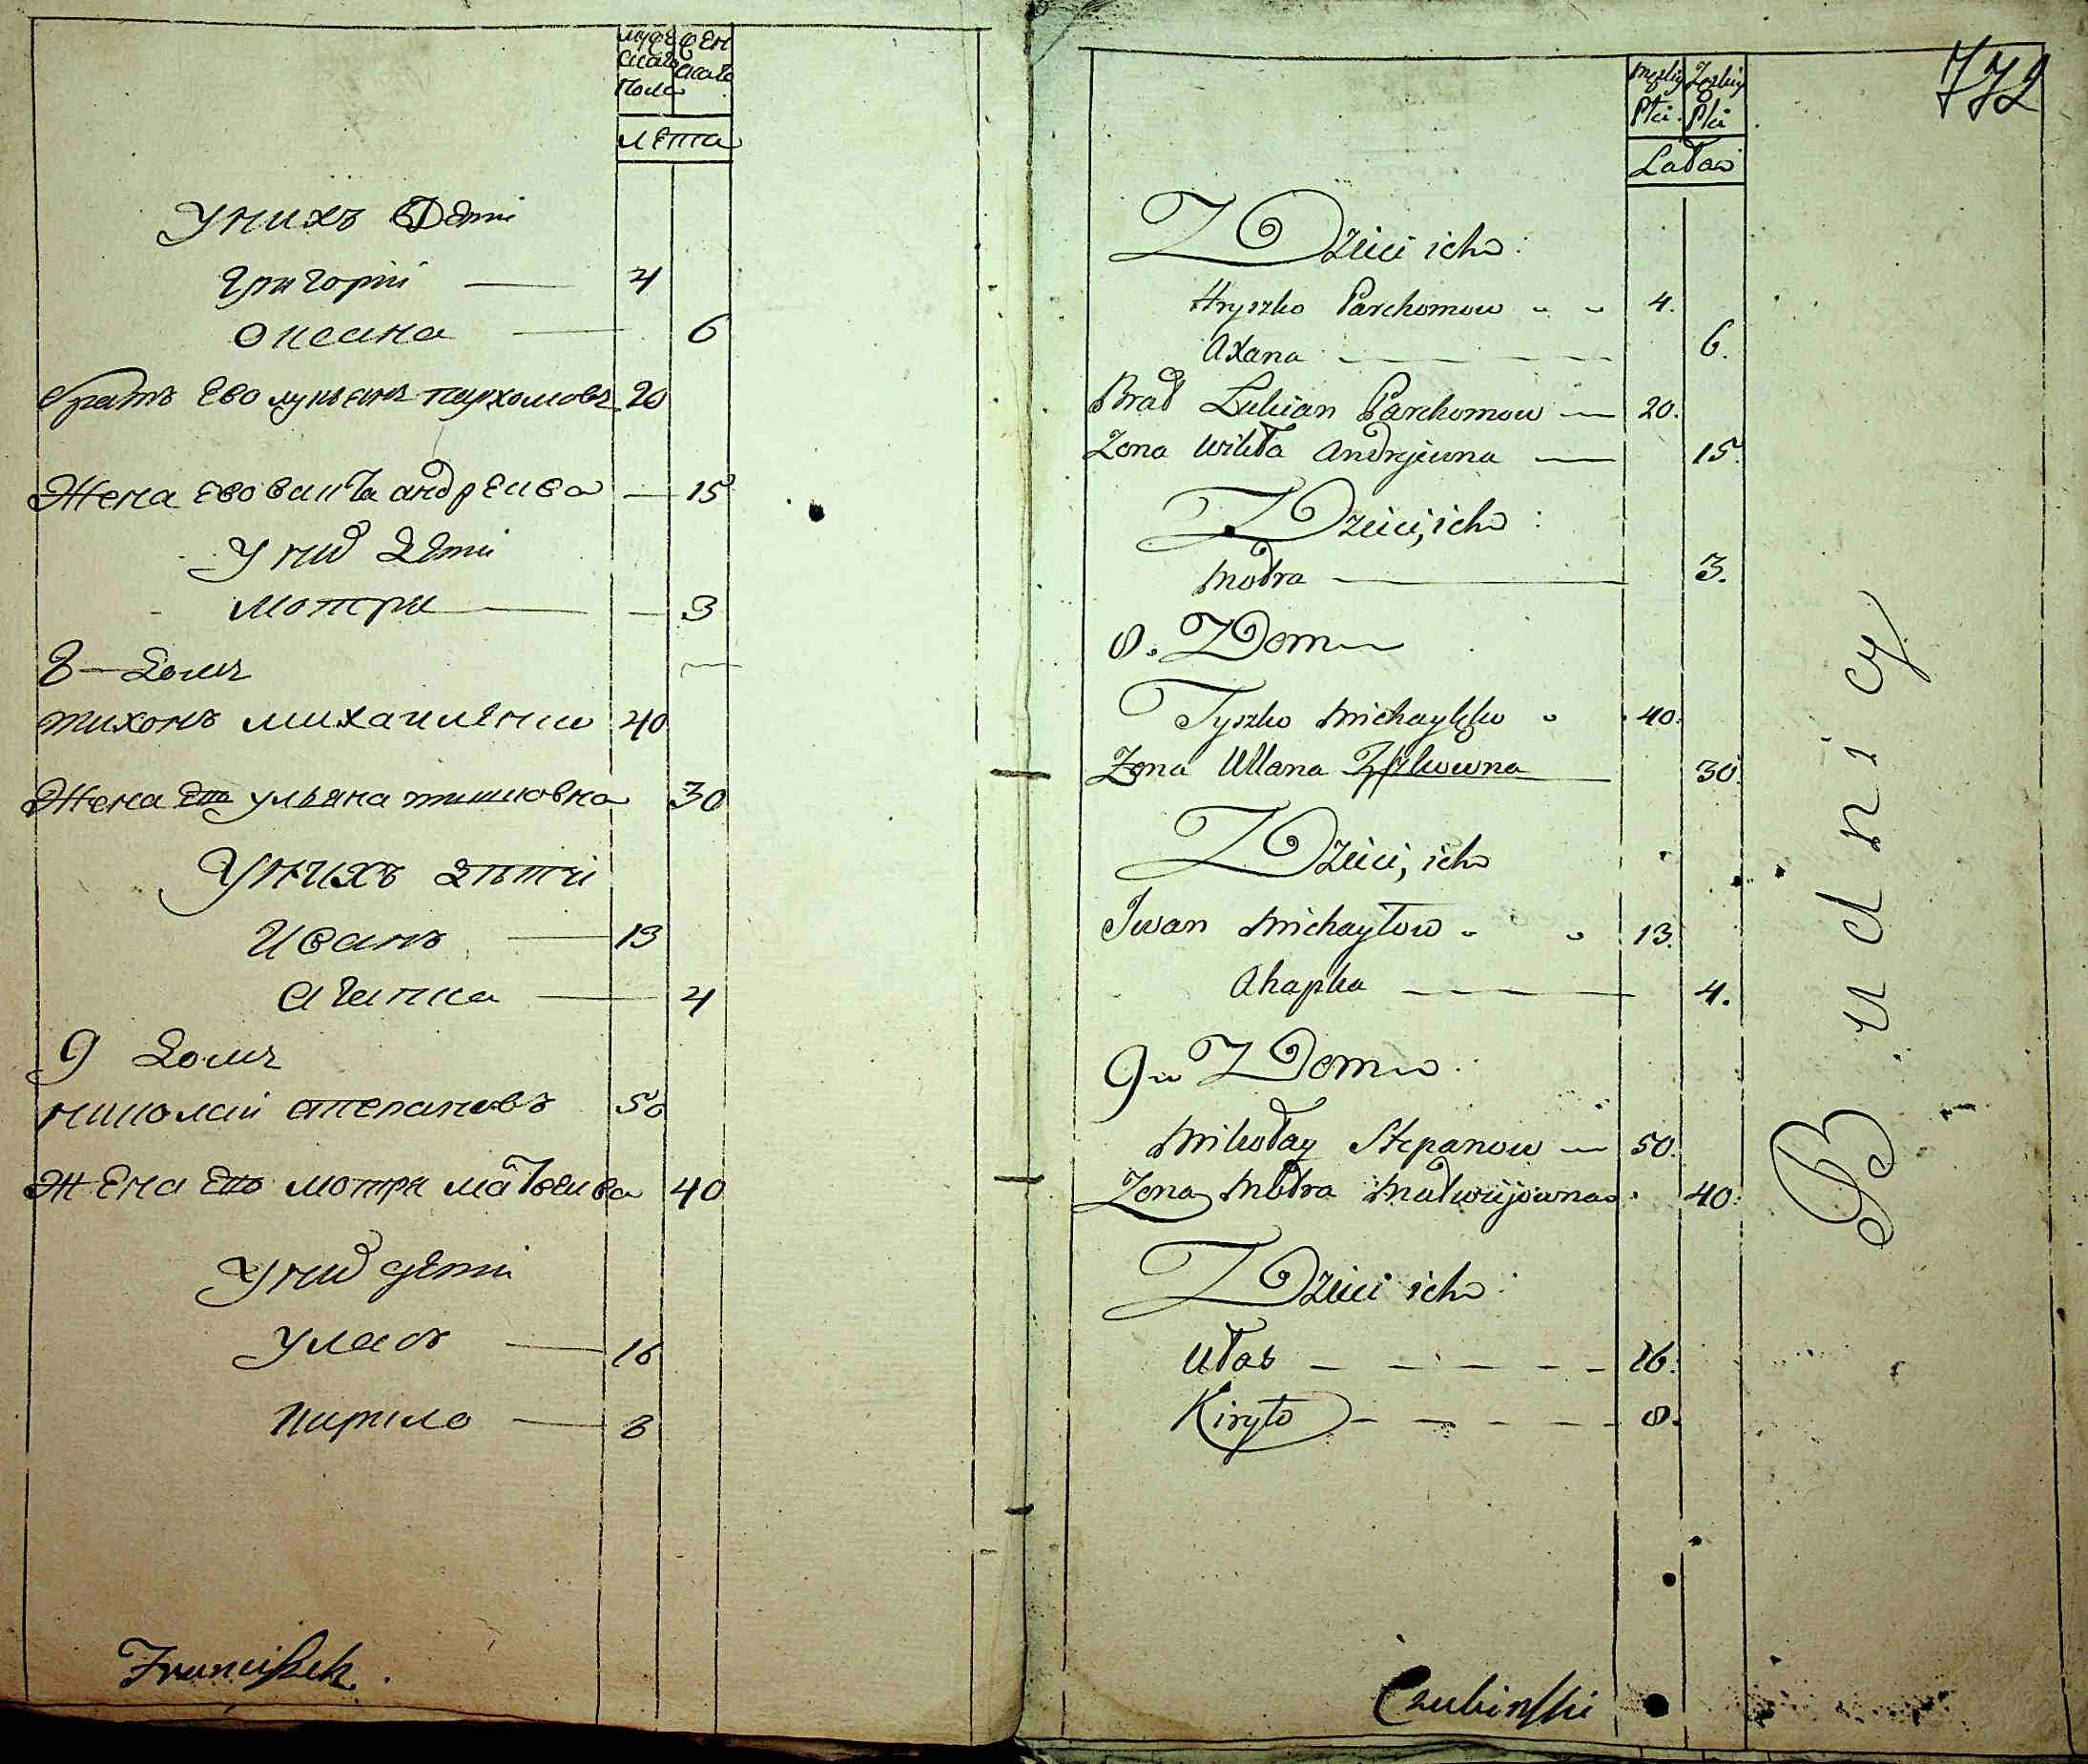 мужескаго Пола
женскаго
лета
У нихъ Дети
Григорій — 4
Оксана — 6
братъ ево лукьянъ пархомовъ 20
Жена ево вивъта андреива — 15
У них дети
Мотря — 3
8 — домъ
тихонъ михаиленко 40
Жена его ульяна тишковна 30
У нихъ дѣти
Иванъ — 13
Агапка — 4
9 домъ
николай степановъ 50
Жена его мотря матвеива 40
У них дети
Уласъ — 16
Кирило — 8
Franciszek
772
męzkiy Płci
Żezkiy Płci
Latas
Dzieci ich:
Hryszko Parchomow 4.
Axana — 6.
Brat Lukian Parchomow — 20.
Zona Wikta Andryiewna — 15.
Dzieci, ich:
Motra — 3.
8. Dom
Tyszko Michayłko 40.
Zona Ullana 30.
Dzieci, ich
Iwan Michayłow 13.
Ahapka — 4.
9 Dom
Mikołay Stepanow — 50.
Zona Motra Matwiijowna 40.
Dzieci ich:
Ułas — 16.
Kiryło — 8.
Budnicy
Czubinski